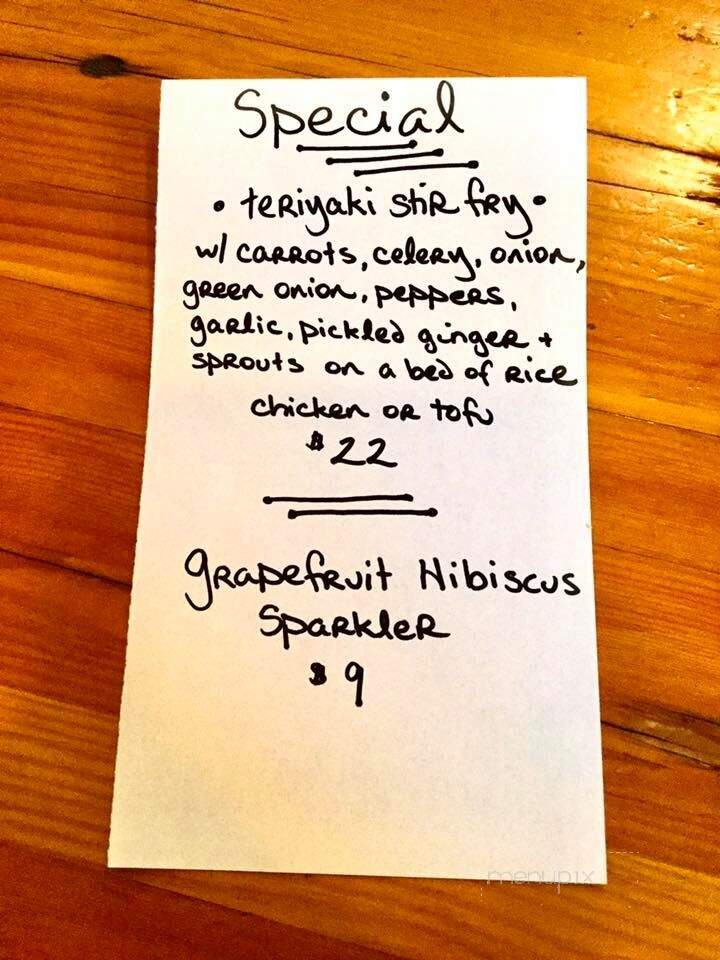 Special
• teriyaki stir fry •
w/ carrots, celery, onion,
green onion, peppers,
garlic, pickled ginger +
sprouts on a bed of rice
chicken or tofu
$22
grapefruit Hibiscus
Sparkler
$9
menupix